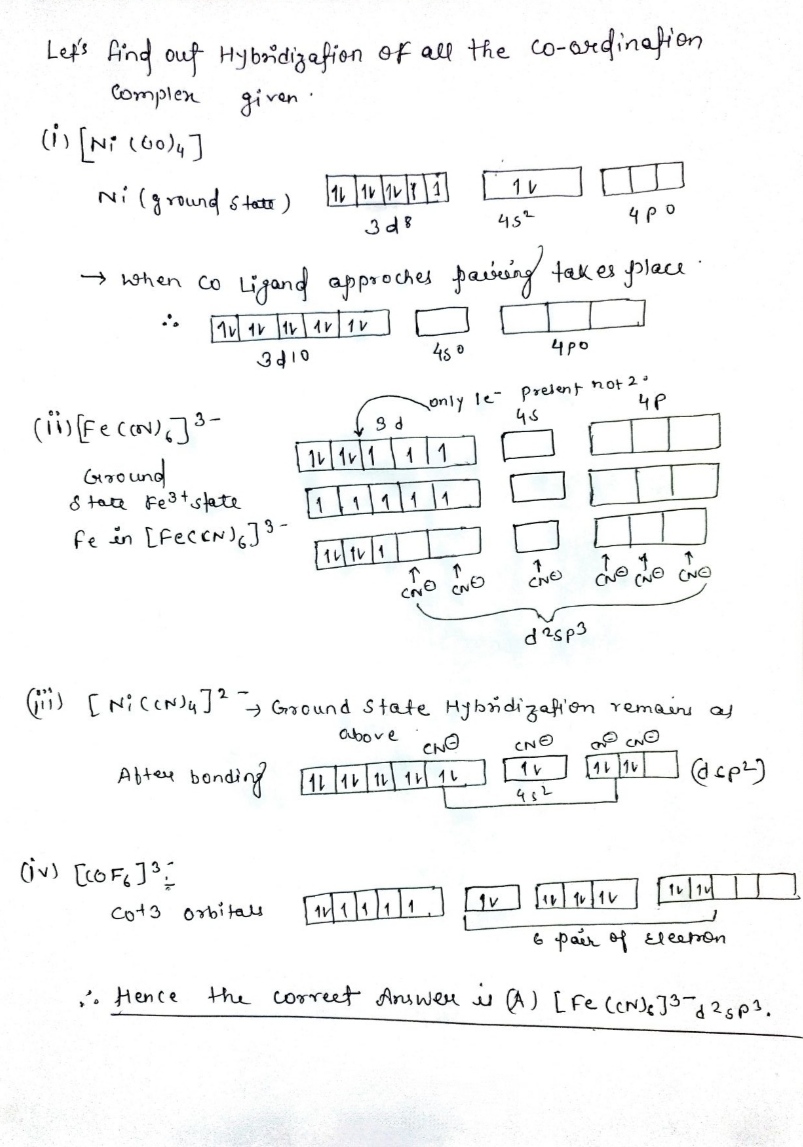 Let's find out Hybridization of all the co-ordination
Complex given.
(i) [Ni(CO)4]
Ni (ground state) 1l 1v 1v 1 1 1v
3d8 4s2 4p0
→ When CO Ligand approches pairing takes place.
∴ 1v 1v 1v 1v 1v
3d10 4s0 4p0
only 1e- present not 2.
(ii) [Fe(CN)6]3- 3d 4s 4p
1l 1v 1 1 1
Ground
State Fe3+ state 1 1 1 1 1
Fe in [Fe(CN)6]3- 1l 1v 1
CN⊖ CN⊖ CN⊖ CN⊖ CN⊖ CN⊖
d2sp3
(iii) [Ni(CN)4]2- → Ground State Hybridization remains as
above. CN⊖ CN⊖ CN⊖ CN⊖
After bonding 1l 1v 1l 1v 1l 1v 1l 1v (dsp2)
4s2
(iv) [CoF6]3-:
Co+3 orbitals 1v 1 1 1 1 1v 1v 1v 1v 1v 1v
6 pair of electron
∴ Hence the correct Answer is (A) [Fe(CN)6]3- d2sp3.